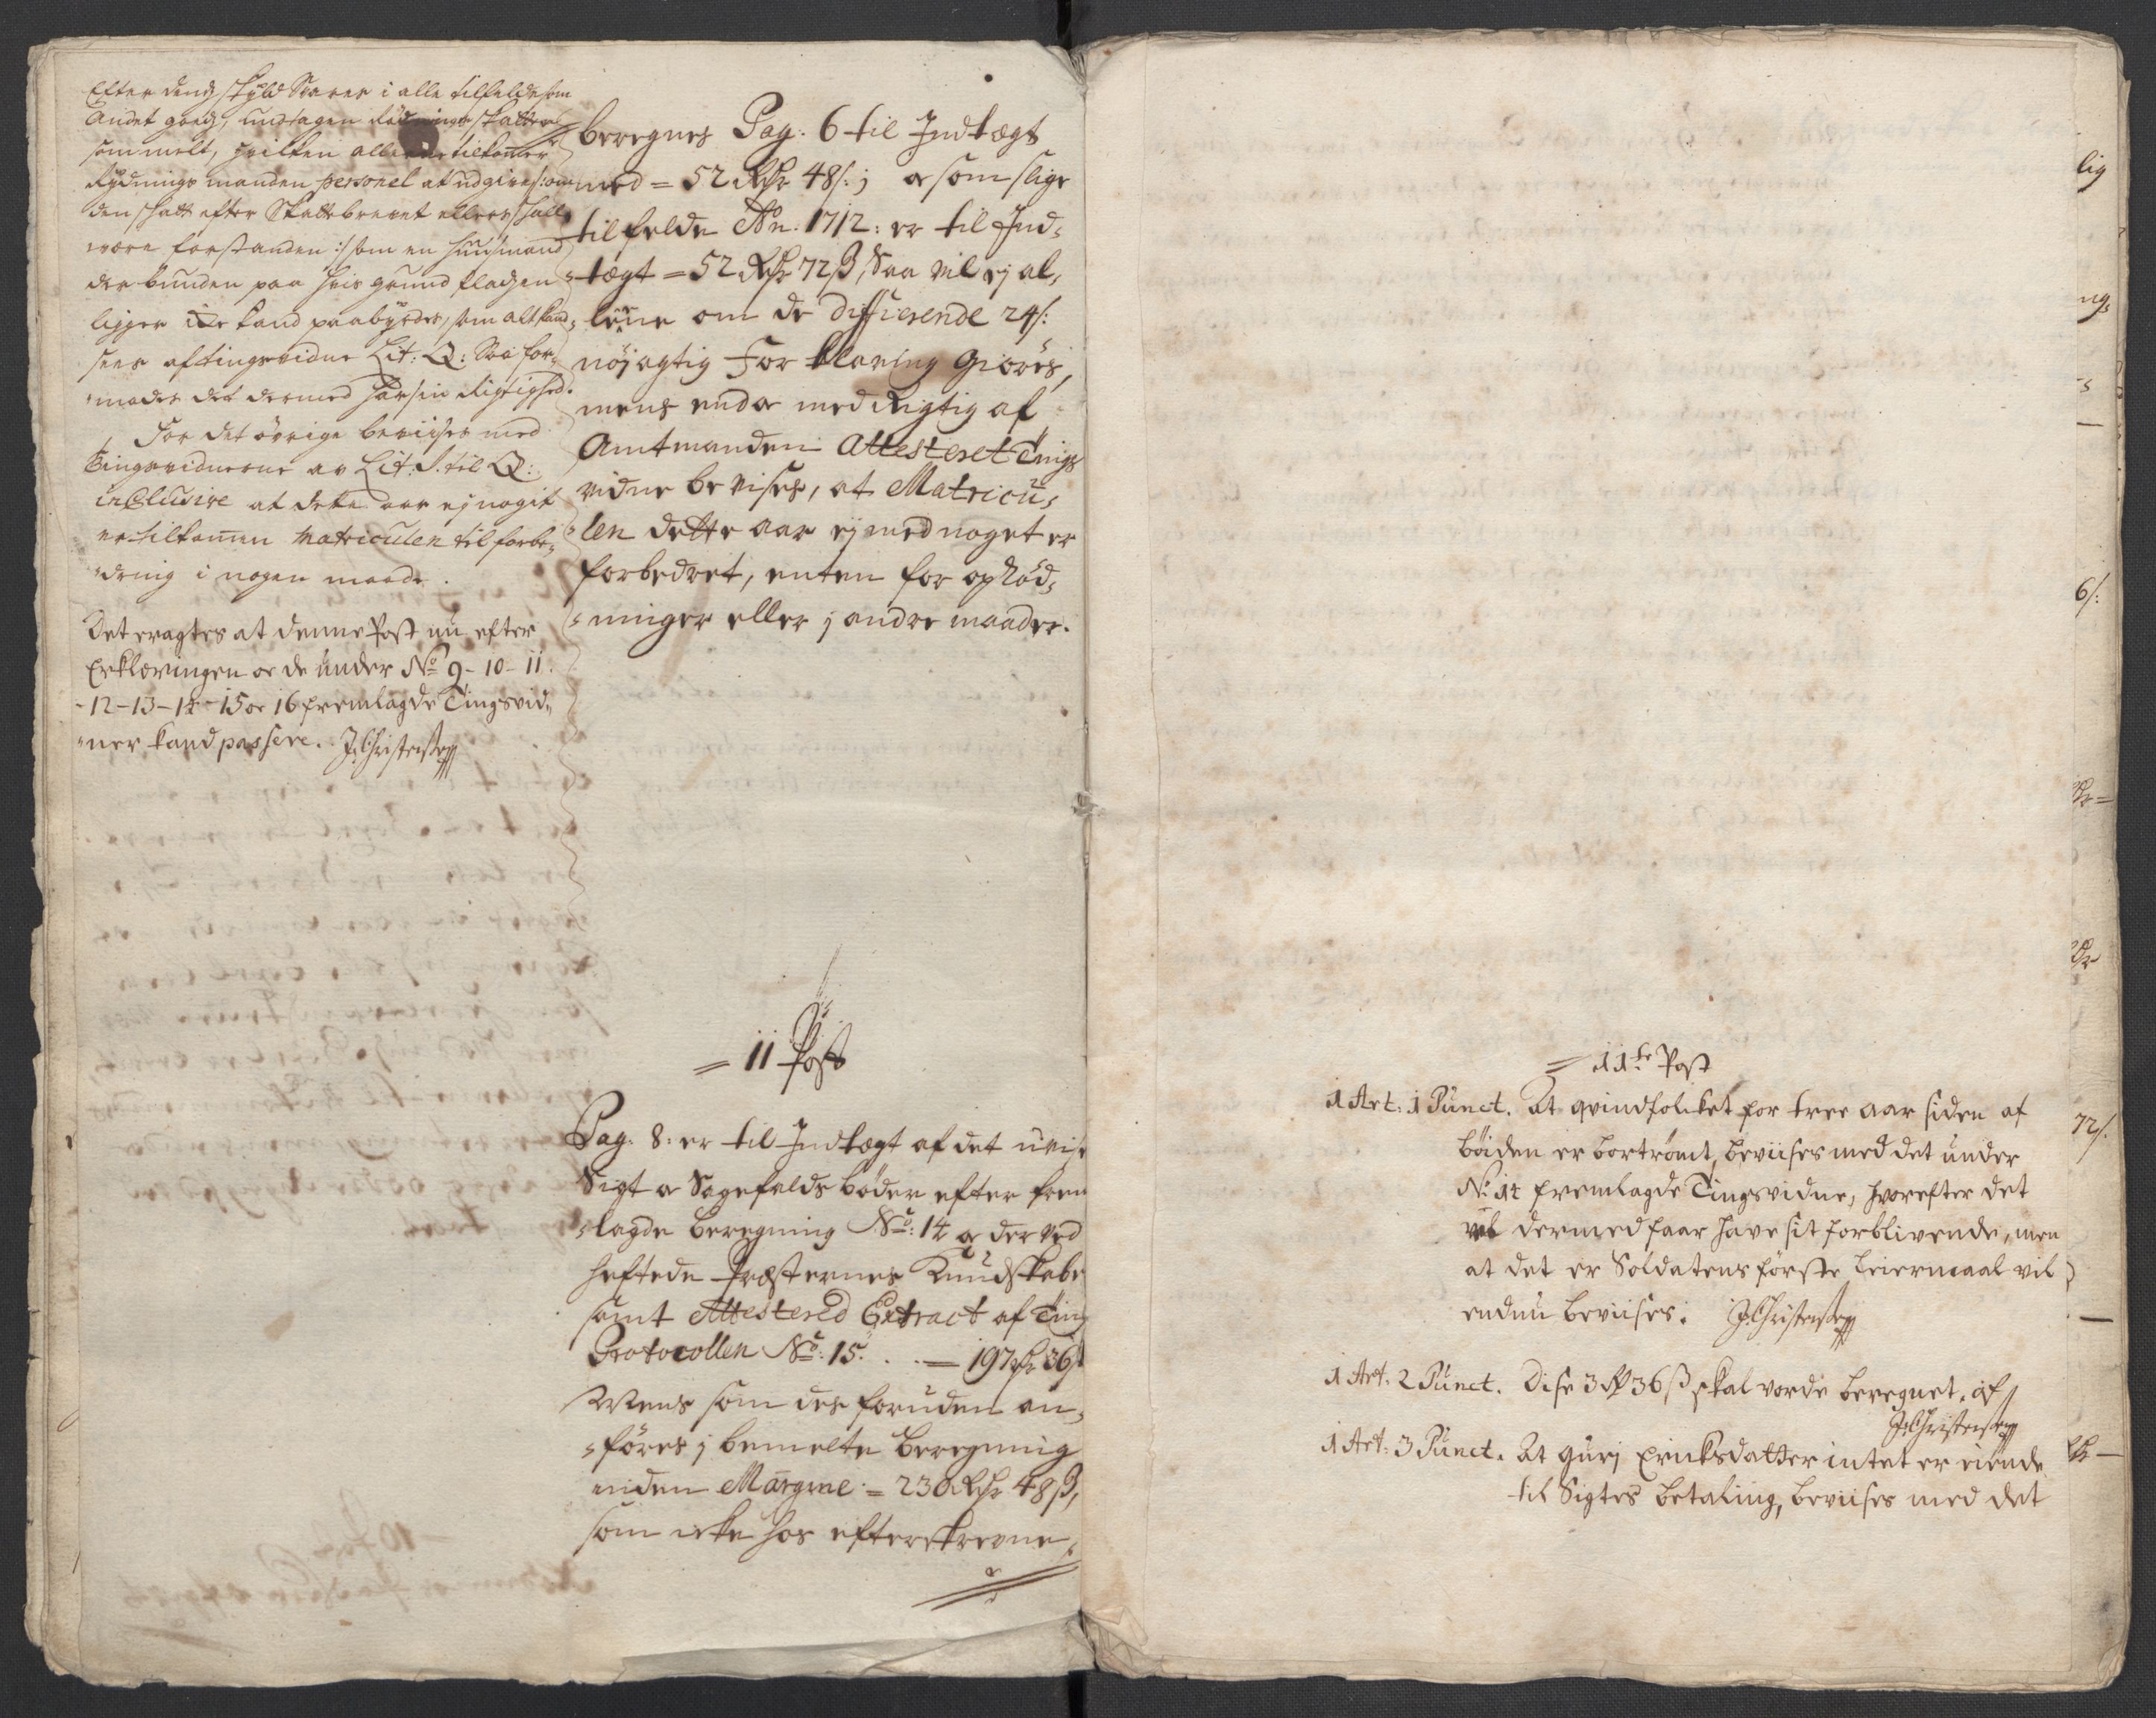 Efter dends skyld Svares i alle tilfelde som
andet goeds, undtagen Rødnings skatten
som melt, hvilken allene tilkommer
Rydnings manden personel at udgives: om
den skatt efter Skattebrevet ellers skall
være forstanden :/ som en huusmand
der buunden paa hvis grund pladsen
ligger icke kand paabyrdes, som alt kand
sees af tingsvidne Lit: Q: Saa for¬
modes det dermed har sin Rigtighed.
For det øvrige beviises med
Tingsvidnerne av Lit: I. til Q:
incluisive at dette aar ej nogit
er tilkommen Matriculen til forbe¬
dring i nogen maade.
Det eragtes at denne Post nu efter
Erklæringen oc de under No 9-10-11.
-12-13-14-15 oc 16 fremlagde Tingsvid¬
ner kand passere. J. Christensen
beregnes Pag: 6 til Indtægt
med = 52 Rdr 48 s: j a som slige
tilfelde Ao. 1712: er til Ind¬
tægt = 52 Rdr 72 ß, Saa vil ej al¬
lene om de differende 24 s:
nøjagtig Forklaring Giøres,
mens end a med Rigtig af
Amtmanden Attesteret Tings
vidne bevises, at Matricu¬
len dette aar ej med noget er
forbedret, enten for oprød¬
ninger eller j andre maader.
= 11 Post
Pag: 8: er til Indtægt af det uvise
Sigt a Sagefalds bøder efter frem
lagde beregning No: 14 a der ved
heftede Præsternes Kundskaber
samt Attestered Extract af Ting
Protocollen No: 15. . . — 197 Rdr 36 s
Mens som des foruden an¬
føres j bemelte beregning
inden Margine = 230 Rdr 48 ß,
som icke hos efterskrevne
= 11te Post
1 Art: 1 Punct. At qvindfolcket for tree aar siden af
bøiden er bortrømt, beviises med det under
No 14 fremlagde Tingsvidne, hvorefter det
vel dermed faar have sit forblivende, men
at det er Soldatens første Leiermaal vil
endnu beviises. J. Christensen
1 Art: 2 Punct. Dise 3 Rdr 36 ß skal vorde beregnet. af
J. Christensen
1 Art: 3 Punct. At Gurj Erichsdatter intet er eiende
til Sigtes betaling, beviises med det
lig
ng¬
6 s:
72 s.